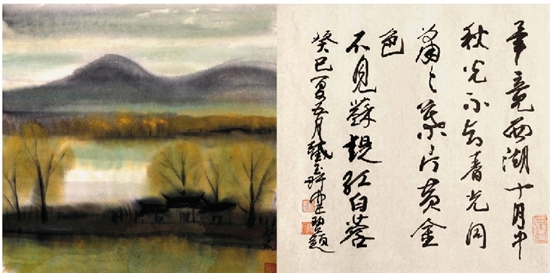 畢竟西湖十月中
秋光不与春光同
蕭々葉片黄金
色
不見蘇堤红白蓉
癸巳夏五月題